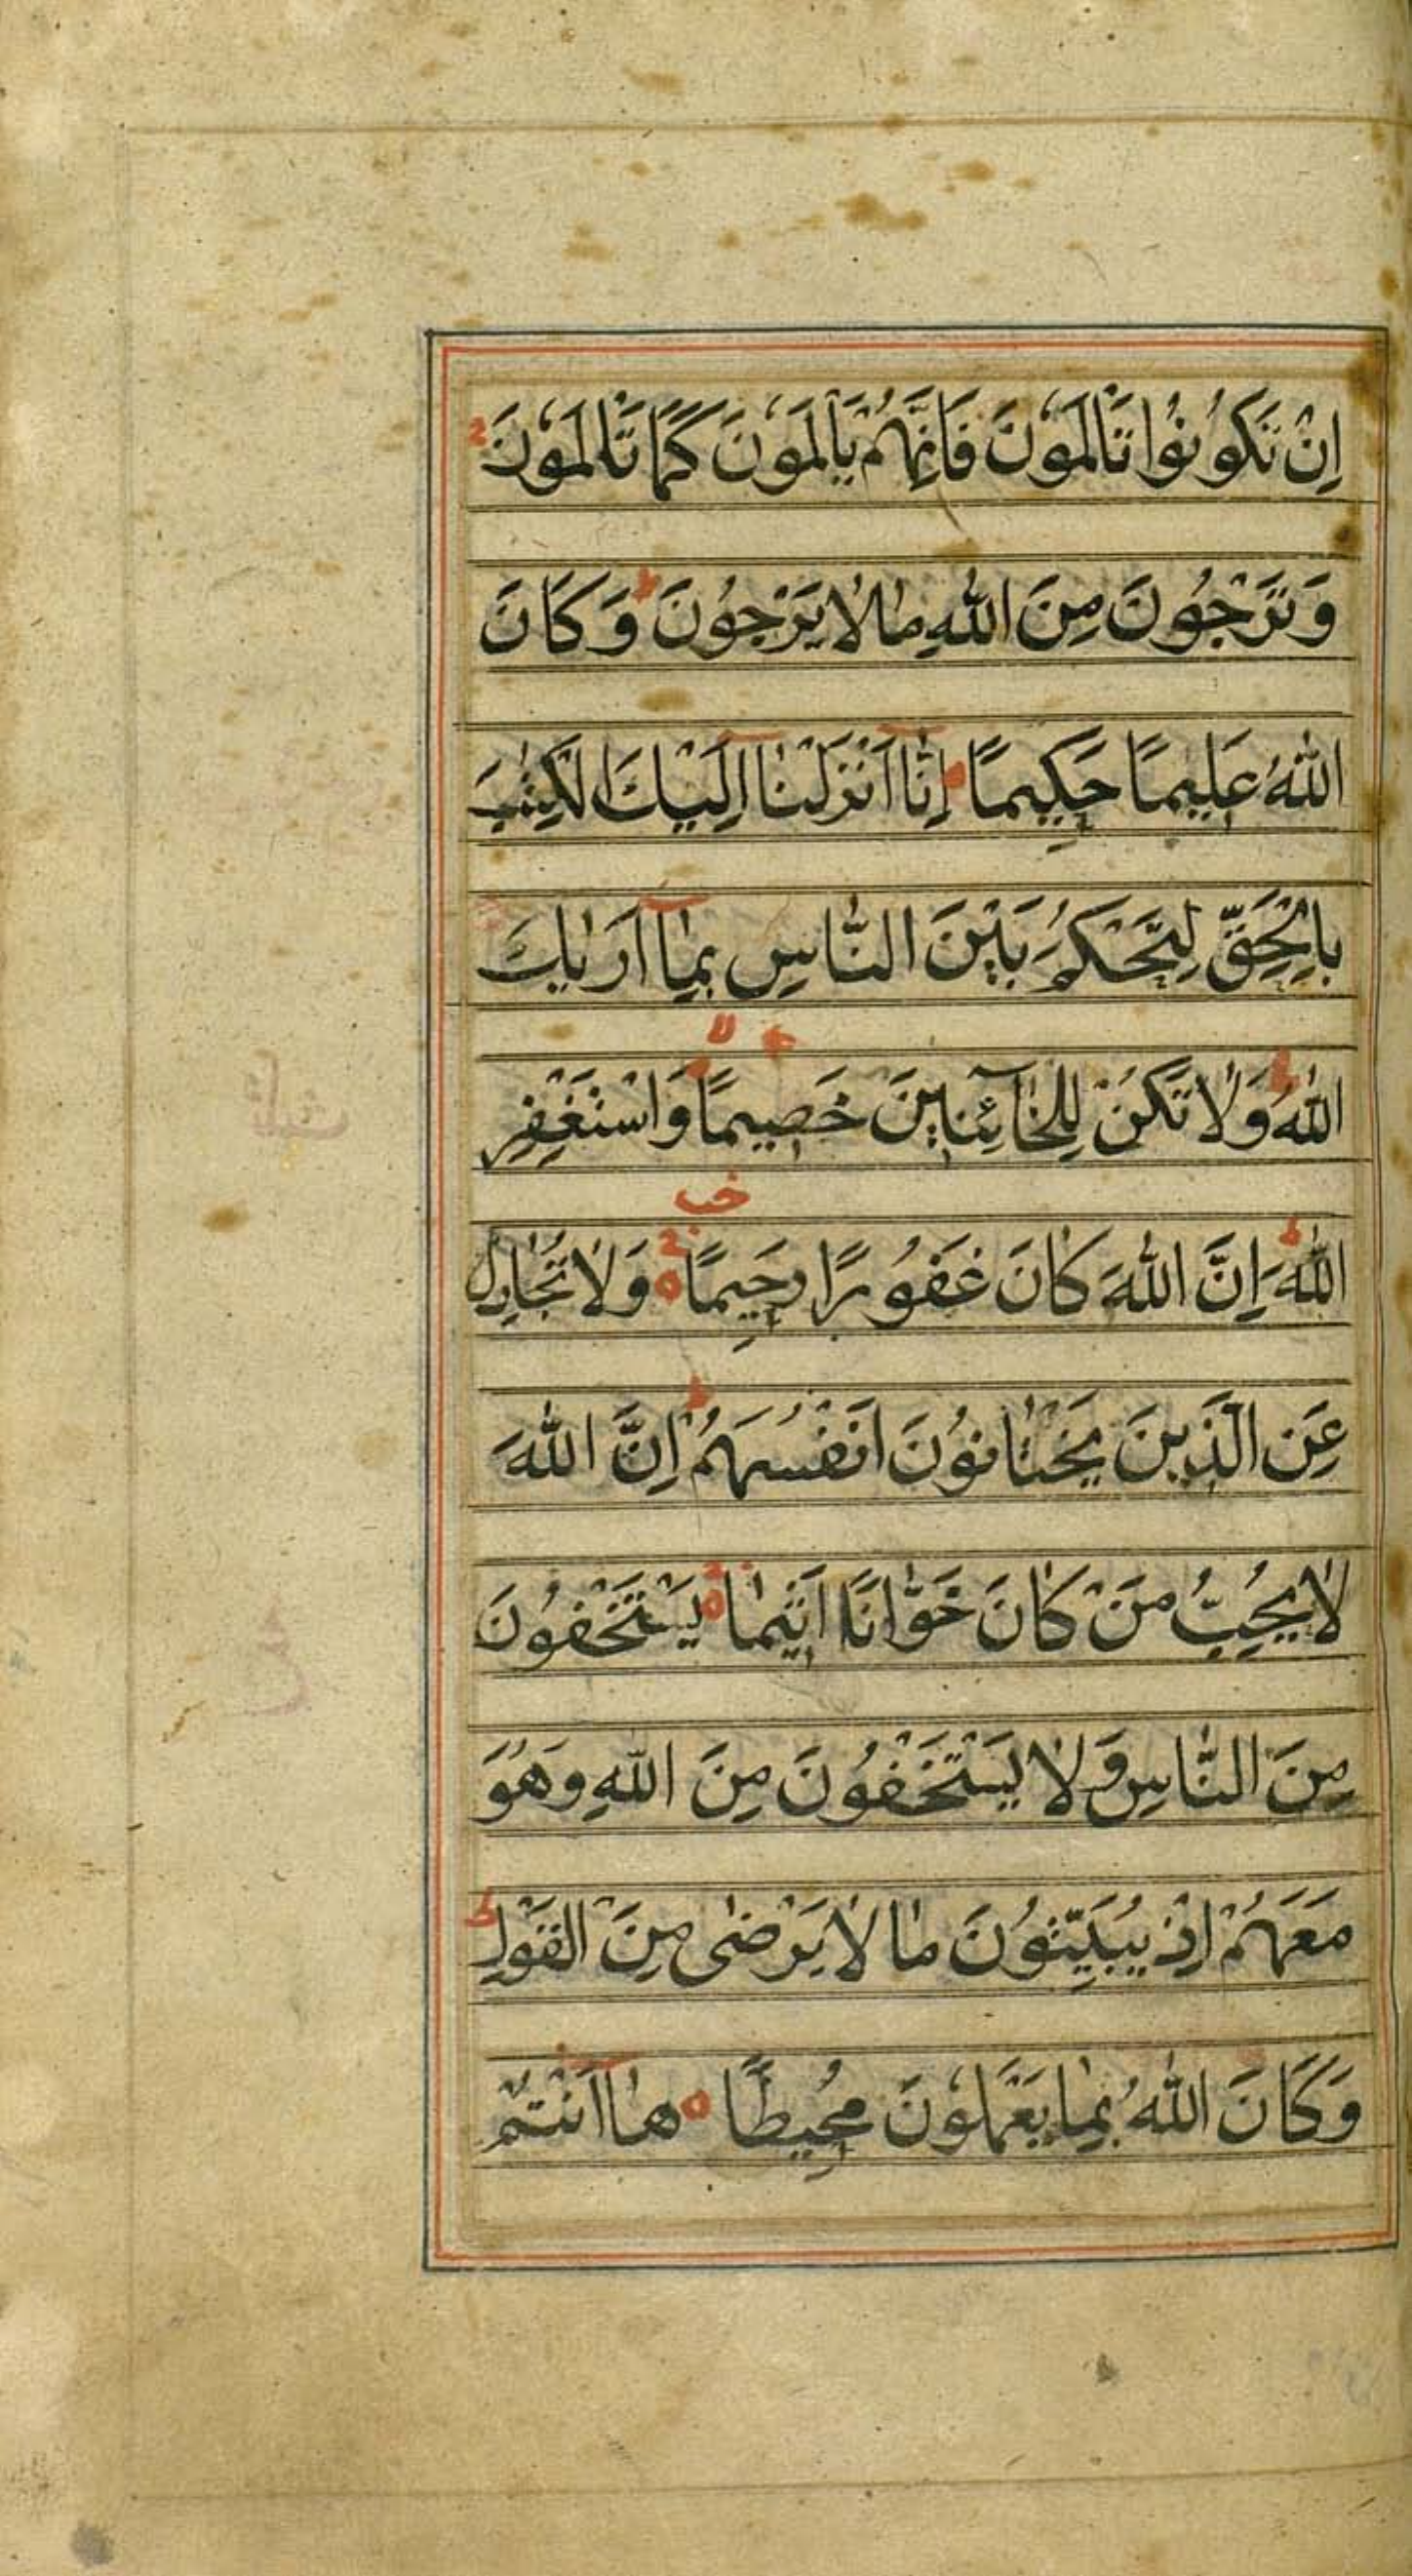 اِنْ تَكُوْنُوا تَاْلَمُوْنَ فَاِنَّهُمْ يَاْلَمُوْنَ كَمَا تَاْلَمُوْنَ
وَتَرْجُوْنَ مِنَ اللّٰهِ مٰا لٰا يَرْجُوْنَ ط وَكَانَ
اللّٰهُ عَلِيمًا حَكِيمًا اِنّٰا اَنْزَلْنٰا اِلَيْكَ الْكِتٰبَ
بِالْحَقِّ لِتَحْكُمَ بَيْنَ النّٰاسِ بِمٰا اَرٰيكَ
اللّٰهُ ط وَلٰا تَكُنْ لِلْخٰآئِنِينَ خَصِيمًا وَاسْتَغْفِرِ
اللّٰهَ ط اِنَّ اللّٰهَ كٰانَ غَفُوْرًا رَحِيمًا وَلٰا تُجٰادِلْ
عَنِ الَّذِينَ يَخْتٰانُوْنَ اَنْفُسَهُمْ ط اِنَّ اللّٰهَ
لٰا يُحِبُّ مَنْ كٰانَ خَوّٰانًا اَثِيمًا يَسْتَخْفُوْنَ
مِنَ النّٰاسِ وَلٰا يَسْتَخْفُوْنَ مِنَ اللّٰهِ وَهُوَ
مَعَهُمْ اِذْ يُبَيِّتُوْنَ مٰا لٰا يَرْضٰى مِنَ الْقَوْلِ ط
وَكَانَ اللّٰهُ بِمٰا يَعْمَلُوْنَ مُحِيطًا هٰا اَنْتُمْ